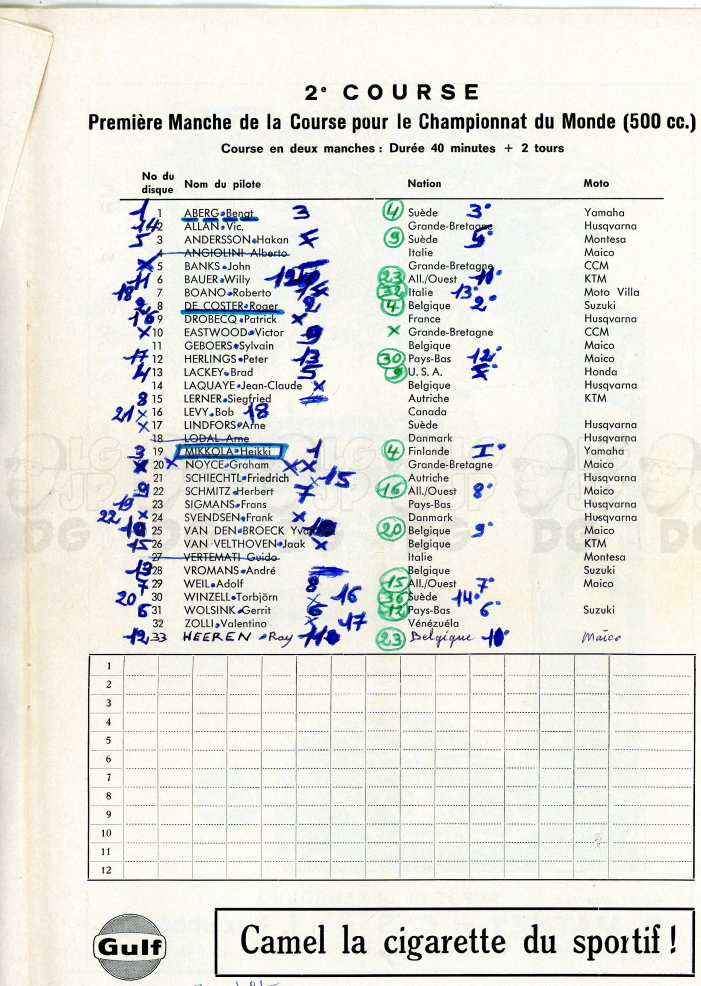 2e COURSE
Première Manche de la Course pour le Championnat du Monde (500 cc.)
Course en deux manches : Durée 40 minutes + 2 tours
No du disque Nom du pilote Nation Moto
1 1 ABERG Bengt 3 4 Suède 3° Yamaha
14 2 ALLAN Vic. Grande-Bretagne Husqvarna
5 3 ANDERSSON Hakan 9 Suède 5° Montesa
4 ANGIOLINI Alberto Italie Maico
5 BANKS John Grande-Bretagne CCM
11 6 BAUER Willy 23 All./Ouest KTM
18 7 BOANO Roberto 32 Italie 13° Moto Villa
2 8 DE COSTER Roger 2 4 Belgique 2° Suzuki
16 9 DROBECQ Patrick X France Husqvarna
X 10 EASTWOOD Victor X Grande-Bretagne CCM
11 GEBOERS Sylvain Belgique Maico
17 12 HERLINGS Peter 13 30 Pays-Bas 12° Maico
4 13 LACKEY Brad 5 9 U. S. A. Honda
14 LAQUAYE Jean-Claude X Belgique Husqvarna
8 15 LERNER Siegfried Autriche KTM
21 X 16 LEVY Bob 18 Canada
X 17 LINDFORS Arne Suède Husqvarna
18 LODAL Arne Danmark Husqvarna
3 19 MIKKOLA Heikki 1 4 Finlande I° Yamaha
X 20 X NOYCE Graham X X Grande-Bretagne Maico
21 SCHIECHTL Friedrich X 15 Autriche Husqvarna
9 22 SCHMITZ Herbert 7 16 All./Ouest 8° Maico
19 23 SIGMANS Frans Pays-Bas Husqvarna
22 X 24 SVENDSEN Frank X Danmark Husqvarna
10 25 VAN DEN BROECK Yvan 10 20 Belgique 9° Maico
15 26 VAN VELTHOVEN Jaak X Belgique KTM
27 VERTEMATI Guido Italie Montesa
13 28 VROMANS André Belgique Suzuki
7 29 WEIL Adolf 8 15 All./Ouest 7° Maico
20 30 WINZELL Torbjörn X 16 36 Suède 14°
6 31 WOLSINK Gerrit 6 12 Pays-Bas 6° Suzuki
32 ZOLLI Valentino X 17 Vénézuéla
12 33 HEEREN Ray 11 23 Belgique 10° Maïco
1
2
3
4
5
6
7
8
9
10
11
12
Gulf
Camel la cigarette du sportif !